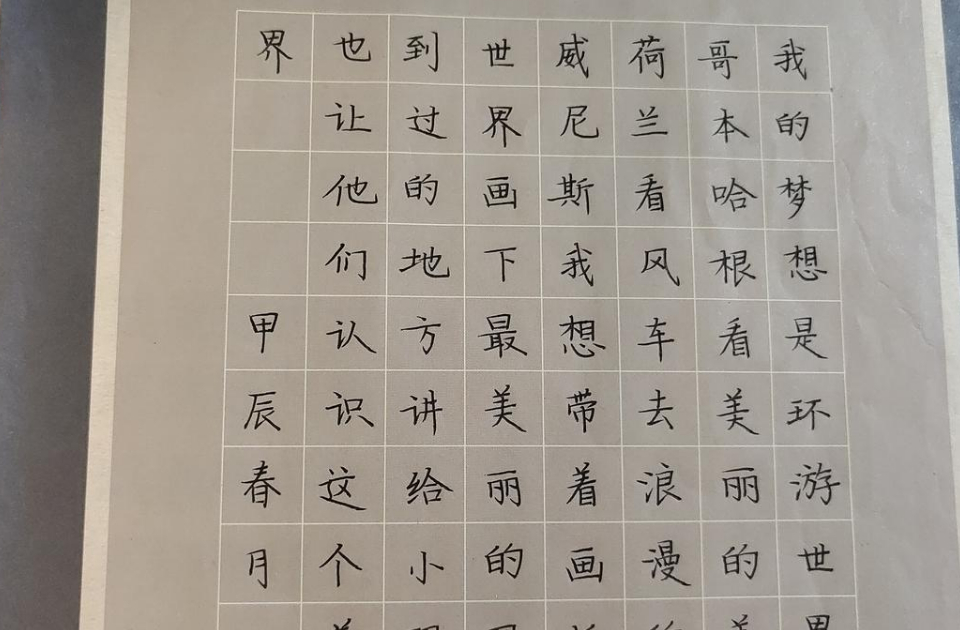 我的梦想是环游世界
哥本哈根看美丽的美
荷兰看风车去浪漫的
威尼斯我想带着画
世界画下最美丽的
到过的地方讲给小
也让他们认识这个美
界甲辰春月